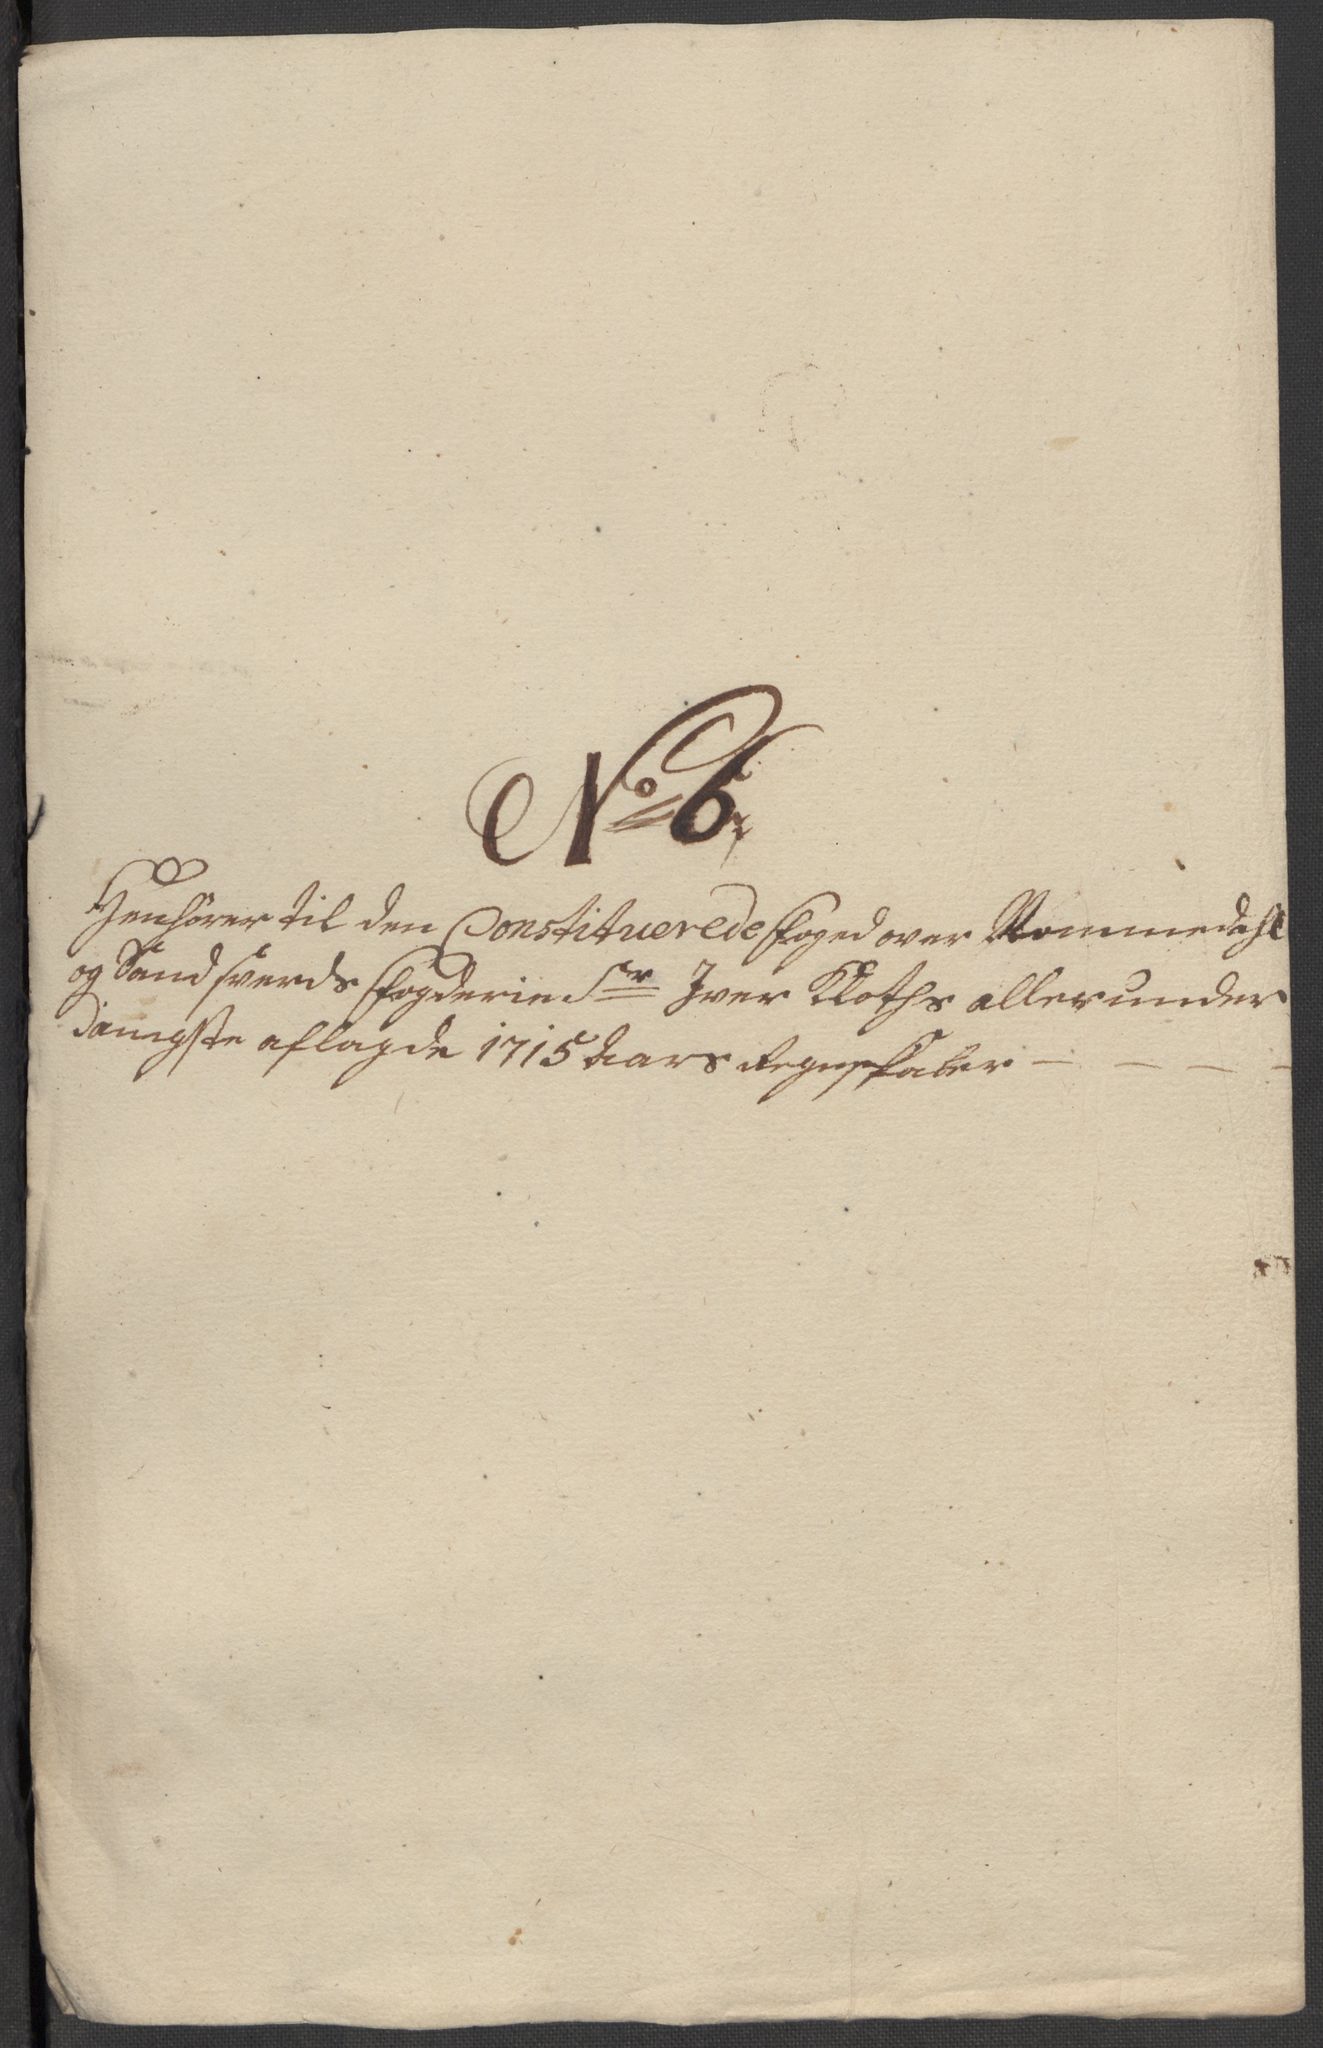 No 6
Henhører til den Constituerede Foged over Nommedahl
og Sandsverds Fogderie Sr Iver Kloths allerunder
danigste aflagde 1715 Aars Regnskaber - - - -